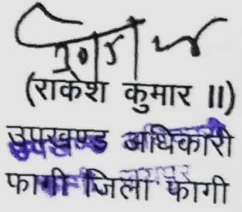 (राकेश कुमार II)
उपखण्ड अधिकारी
फागी जिला फागी